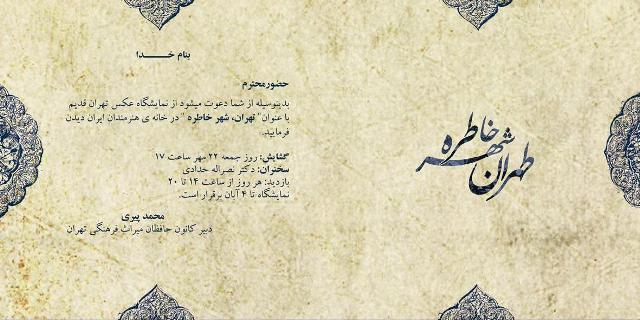 بنام خـــــدا
حضورمحترم
بدینوسیله از شما دعوت میشود از نمایشگاه عکس تهران قدیم
با عنوان" تهران، شهر خاطره " در خانه ی هنرمندان ایران دیدن
فرمایید.
گشایش: روز جمعه ۲۲ مهر ساعت ۱۷
سخنران: دکتر نصراله حدادی
بازدید: هر روز از ساعت ۱۴ تا ۲۰
نمایشگاه تا ۴ آبان برقرار است.
محمد پیری
دبیر کانون حافظان میراث فرهنگی تهران
طهران شهر خاطره